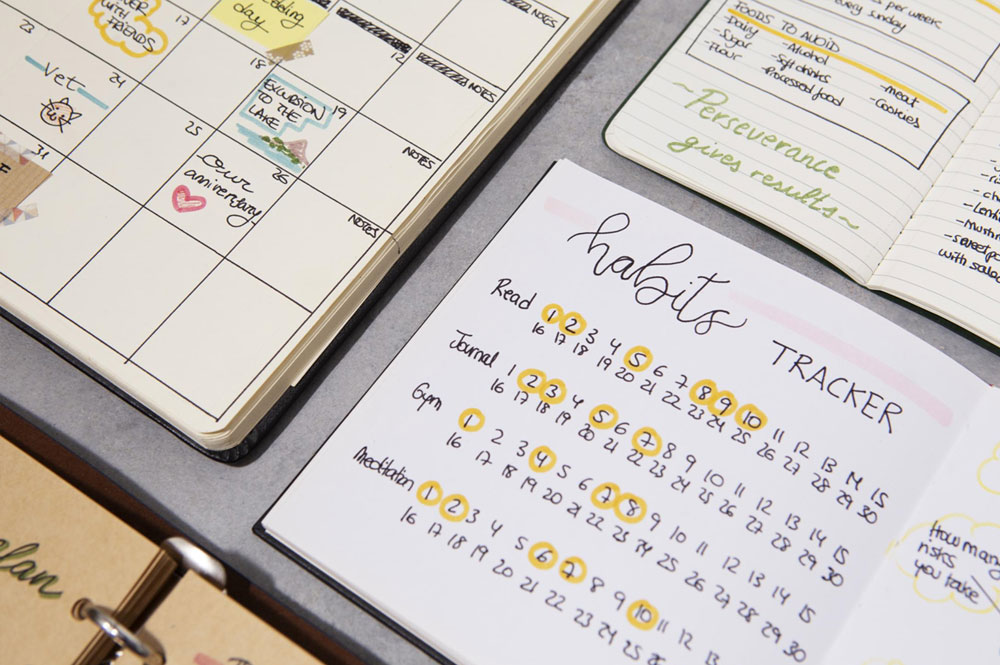 WITH
FRIENDS
17
day
NOTES
12
NOTES
23
Vet
24
18
EXCURSION
TO THE
LAKE
19
NOTES
31
25
our
anniversary
26
NOTES
per week
every Sunday
FOODS TO AVOID
-Dairy -Alcohol -meat
-Sugar -Soft drinks -Cookies
-Flour -Processed food
~Perseverance
gives results~
with salad
habits
TRACKER
Read 1 2 3 4 5 6 7 8 9 10 11 12 13 14 15
16 17 18 19 20 21 22 23 24 25 26 27 28 29 30
Journal 1 2 3 4 5 6 7 8 9 10 11 12 13 14 15
16 17 18 19 20 21 22 23 24 25 26 27 28 29 30
Gym 1 2 3 4 5 6 7 8 9 10 11 12 13 14 15
16 17 18 19 20 21 22 23 24 25 26 27 28 29 30
Meditation 1 2 3 4 5 6 7 8 9 10 11 12 13
16 17 18 19 20 21 22 23 24 25
How many
risks
you take
plan